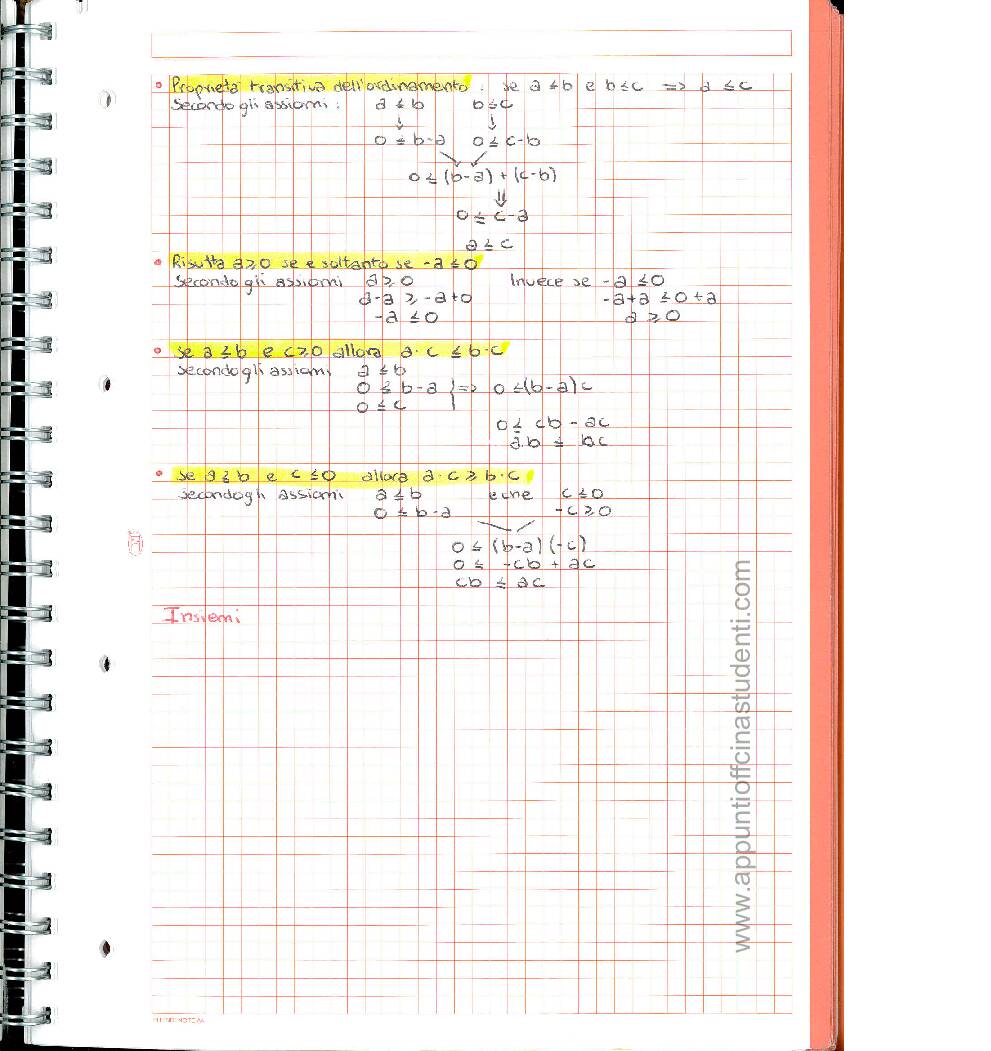 Proprietà transitiva dell'ordinamento : se a ≤ b e b ≤ c => a ≤ c
Secondo gli assiomi : a ≤ b b ≤ c
↓ ↓
0 ≤ b-a 0 ≤ c-b
0 ≤ (b-a) + (c-b)
⇓
0 ≤ c-a
a ≤ c
Risulta a ≥ 0 se e soltanto se -a ≤ 0
Secondo gli assiomi a ≥ 0 Invece se -a ≤ 0
a-a ≥ -a+0 -a+a ≤ 0+a
-a ≤ 0 a ≥ 0
Se a ≤ b e c ≥ 0 allora a·c ≤ b·c
Secondo gli assiomi a ≤ b
0 ≤ b-a => 0 ≤ (b-a)c
0 ≤ c
0 ≤ cb - ac
a.b ≤ bc
Se a ≤ b e c ≤ 0 allora a·c ≥ b·c
secondo gli assiomi a ≤ b e che c ≤ 0
0 ≤ b-a -c ≥ 0
0 ≤ (b-a)(-c)
0 ≤ -cb + ac
cb ≤ ac
Insiemi
www.appuntioffcinastudenti.com